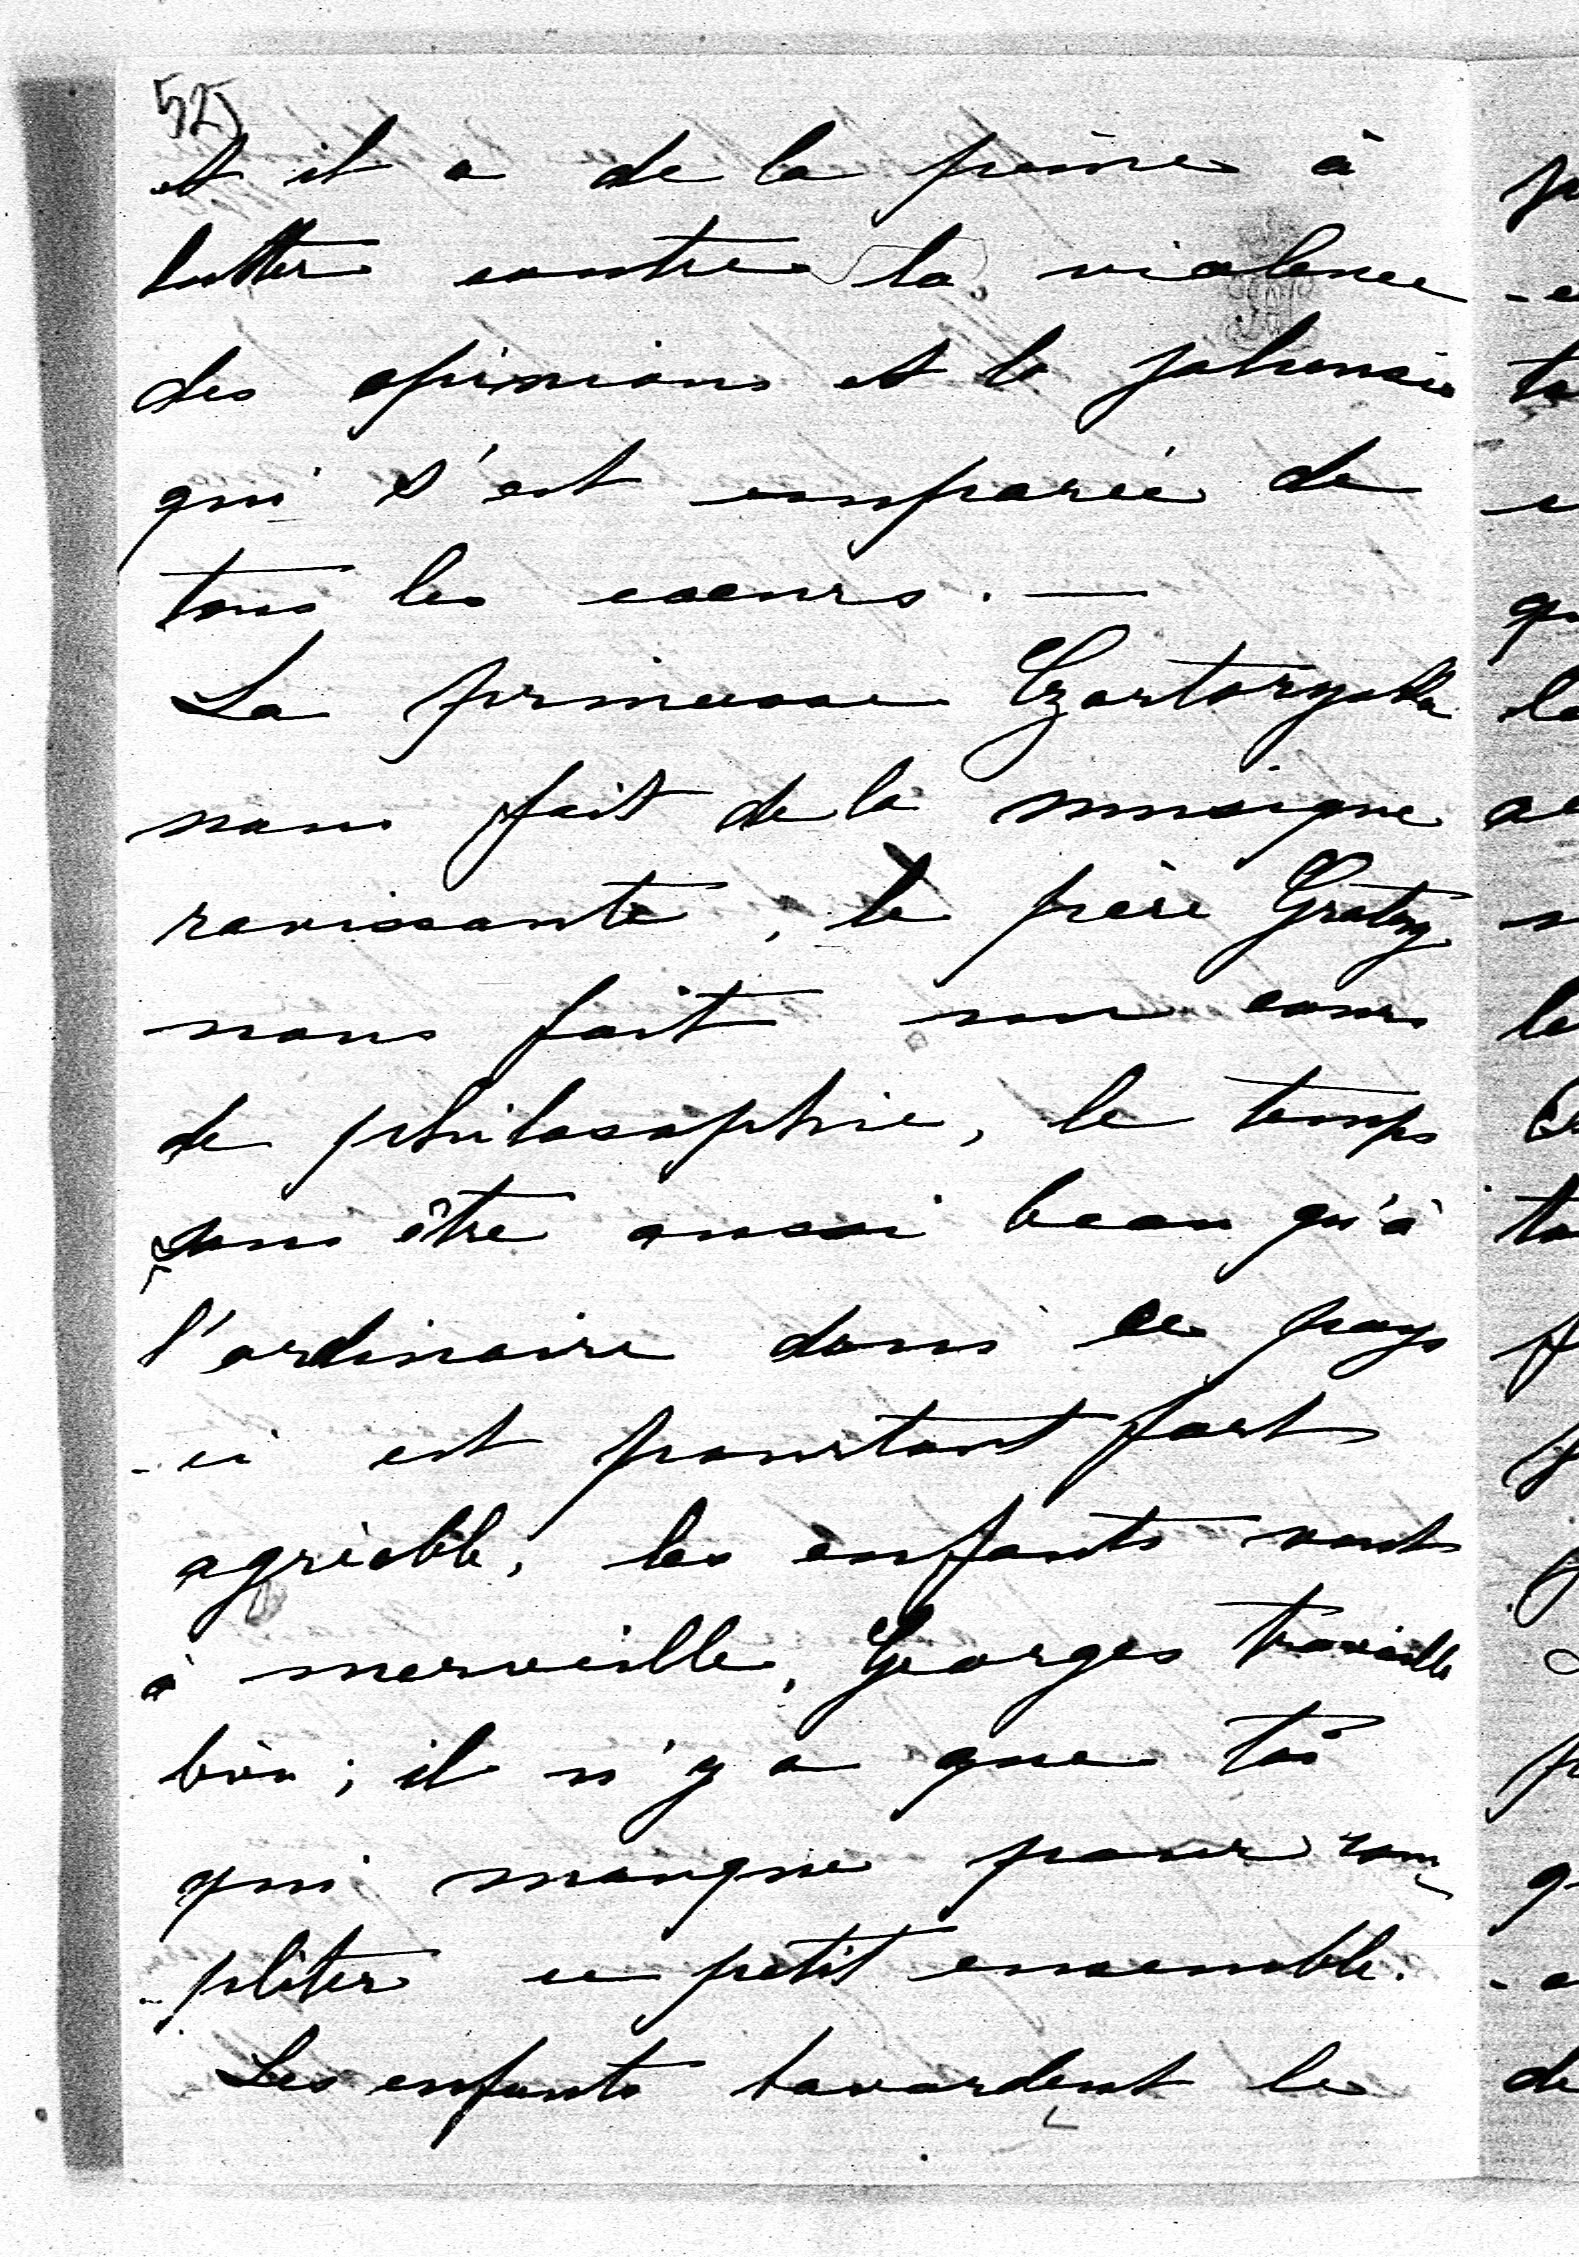 52)
et il a de la peine à
lutter contre la violence
des opinions et la jalousie
qui s'est emparée de
tous les coeurs. —
La princesse Czartoryska
nous fait de la musique
ravissante, le père Gratry
nous fait un cours
de philosophie, le temps
sans être aussi beau qu'à
l'ordinaire dans ce pays
-ci est pourtant fort
agréable, les enfants vont
à merveille, Georges travaille
bien; il n'y a que toi
qui manque pour com
-pléter ce petit ensemble.
Les enfants bavardent le